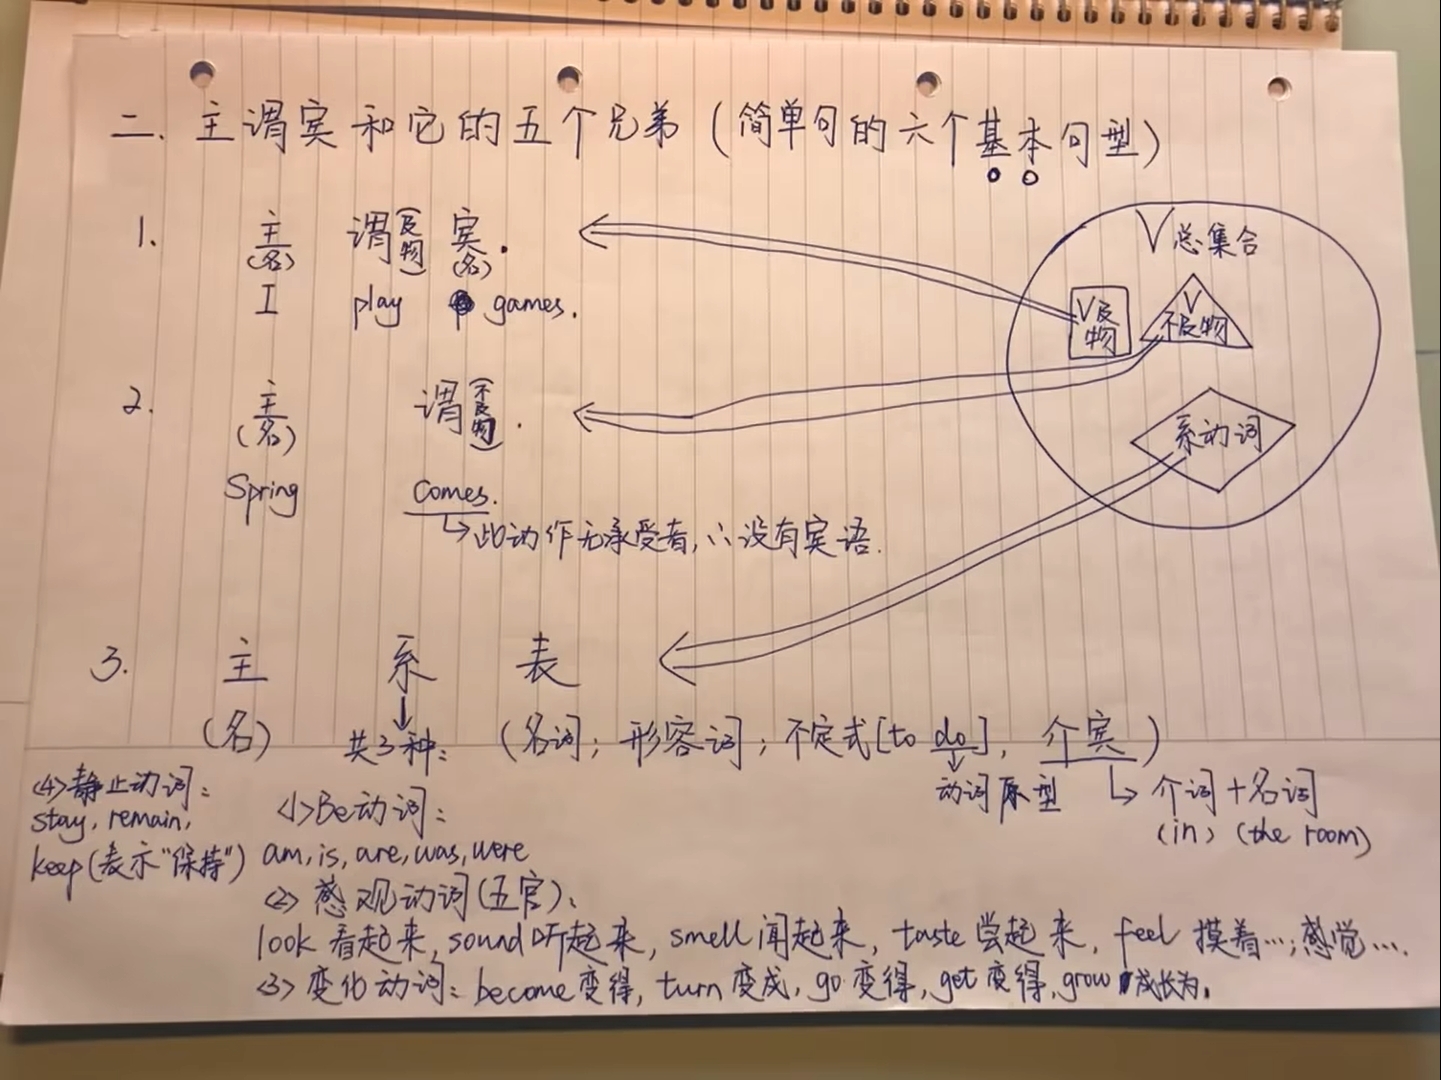 二. 主谓宾和它的五个兄弟(简单句的六个基本句型)
1. 主 谓(及物) 宾.
(名) (名)
I play games.
V总集合
V及物
V不及物
系动词
2. 主 谓(不及物).
(名)
Spring comes.
↳此动作无承受者,∴没有宾语.
3. 主 系 表
(名) 共3种: (名词; 形容词; 不定式[to do], 介宾)
动词原型 ↳ 介词+名词
(in) (the room)
<4>静止动词:
stay, remain,
keep(表示"保持")
<1>Be动词:
am, is, are, was, were
<2> 感观动词(五官):
look 看起来, sound 听起来, smell 闻起来, taste 尝起来, feel 摸着…; 感觉….
<3> 变化动词: become 变得, turn 变成, go 变得, get 变得, grow 成长为.